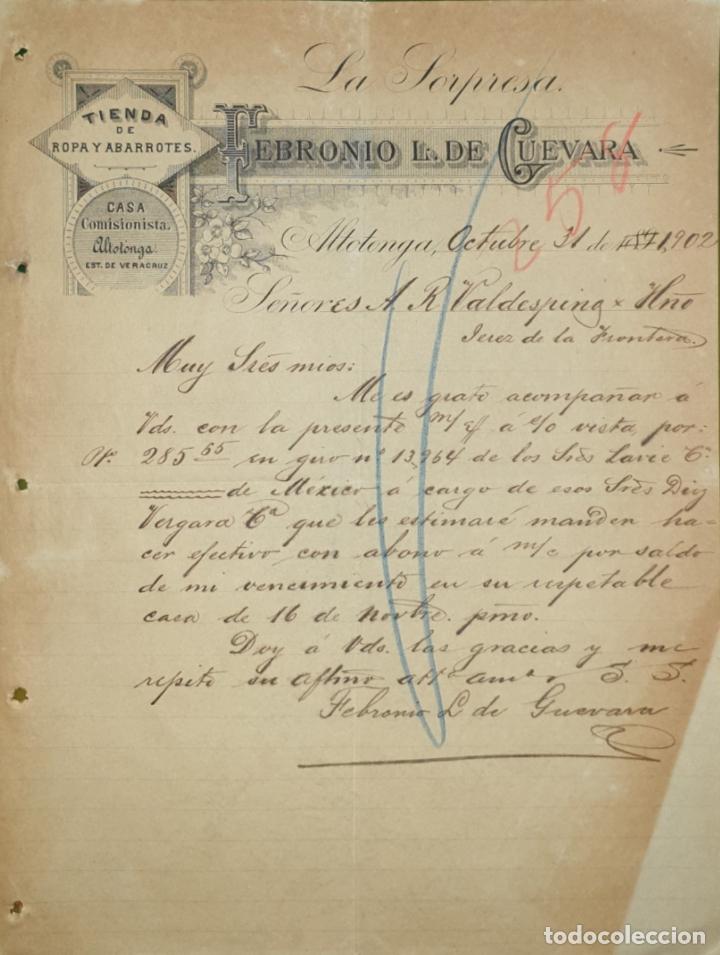 La Sorpresa.
TIENDA
DE
ROPA Y ABARROTES.
FEBRONIO L. DE GUEVARA
CASA
Comisionista.
Altotonga.
EST. DE VERACRUZ
258
Altotonga, Octubre 31 de 1,902
Señores A. R. Valdespino x Hño
Jerez de la Frontera.
Muy Srēs mios:
Me es grato acompañar á
Vds. con la presente m/ á c/o vista, por:
285 65 en giro nº 13,964 de los Srēs Lavie Cª
de México á cargo de esos Srēs Diez
Vergara Cª que les estimaré manden ha-
cer efectivo con abono á m/c por saldo
de mi vencimiento en su respetable
casa de 16 de Novbre. pmo.
Doy á Vds. las gracias y me
repito su aftmo attº amº S. S.
Febronio L de Guevara
todocoleccion